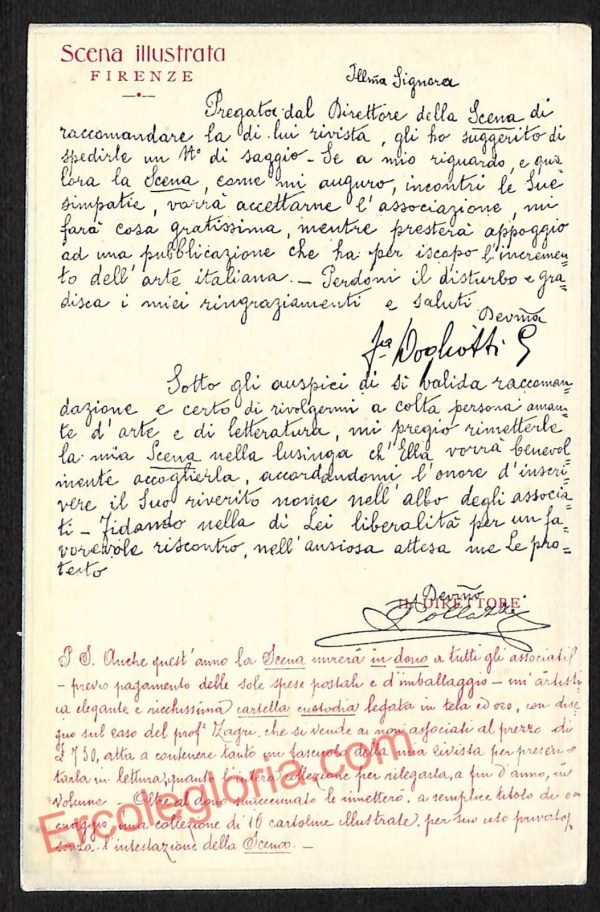 Scena illustrata
FIRENZE
Illm̃a Signora
Pregato dal Direttore della Scena di
raccomandare la di lui rivista, gli ho suggerito di
spedirle un N.º di saggio - Se a mio riguardo, e qua=
lora la Scena, come mi auguro, incontri le Sue
simpatie, vorrà accettarne l'associazione, mi
farà cosa gratissima, mentre presterà appoggio
ad una pubblicazione che ha per iscopo l'incremen=
to dell'arte italiana. - Perdoni il disturbo e gra=
disca i miei ringraziamenti e saluti
Devm̃a
Dogliotti
Sotto gli auspici di sì valida raccoman=
dazione e certo di rivolgermi a colta persona aman=
te d'arte e di letteratura, mi pregio rimetterle
la mia Scena nella lusinga ch'Ella vorrà benevol=
mente accoglierla, accordandomi l'onore d'inscri=
vere il Suo riverito nome nell'albo degli associa=
ti - Fidando nella di Lei liberalità per un fa=
vorevole riscontro, nell'ansiosa attesa me Le pro=
testo
Devm̃o
IL DIRETTORE
Pollazzi
P S. Anche quest'anno la Scena invierà in dono a tutti gli associati
- previo pagamento delle sole spese postali e d'imballaggio - un'artisti=
ca elegante e ricchissima cartella custodia legata in tela ed oro, con dise=
gno sul caso del prof.r Zagri, che si vende ai non associati al prezzo di
£ 7 50, atta a contenere tanto un fascicolo della mia rivista per presen=
tarla in lettura, quanto l'intera collezione per rilegarla, a fin d'anno, in
volume Oltre al dono summenzionato le immetterò, a semplice titolo di o=
maggio, una collezione di 10 cartoline illustrate, per suo uso privato,
senza l'intestazione della Scena. -
Ercolegloria.com